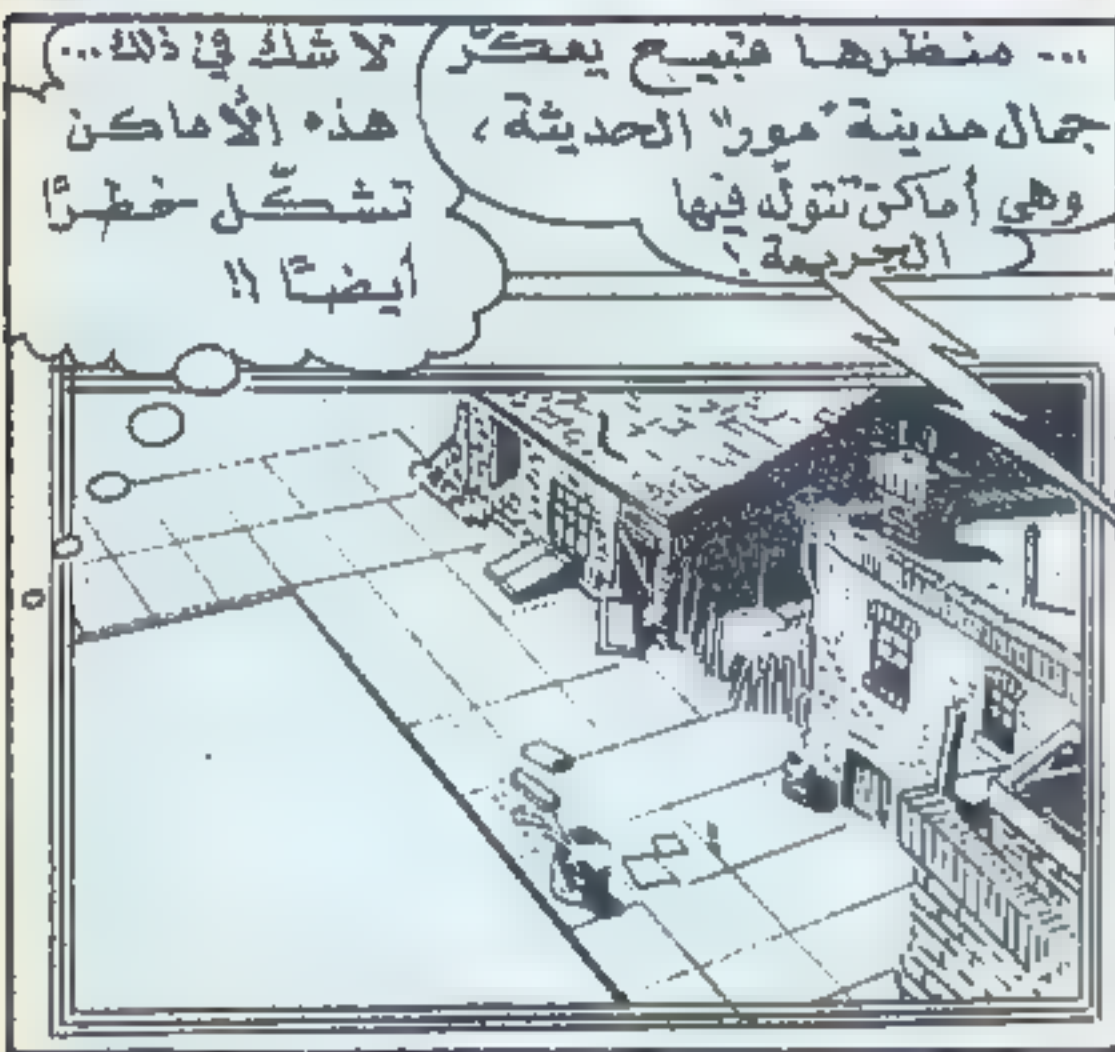 ... منظرها قبيح يعكّر
جمال مدينة "مور" الحديثة ،
وهي أماكن تتولّد فيها
الجريمة !
لا شك في ذلك...
هذه الأماكن
تشكّل خطرًا
أيضًا !!